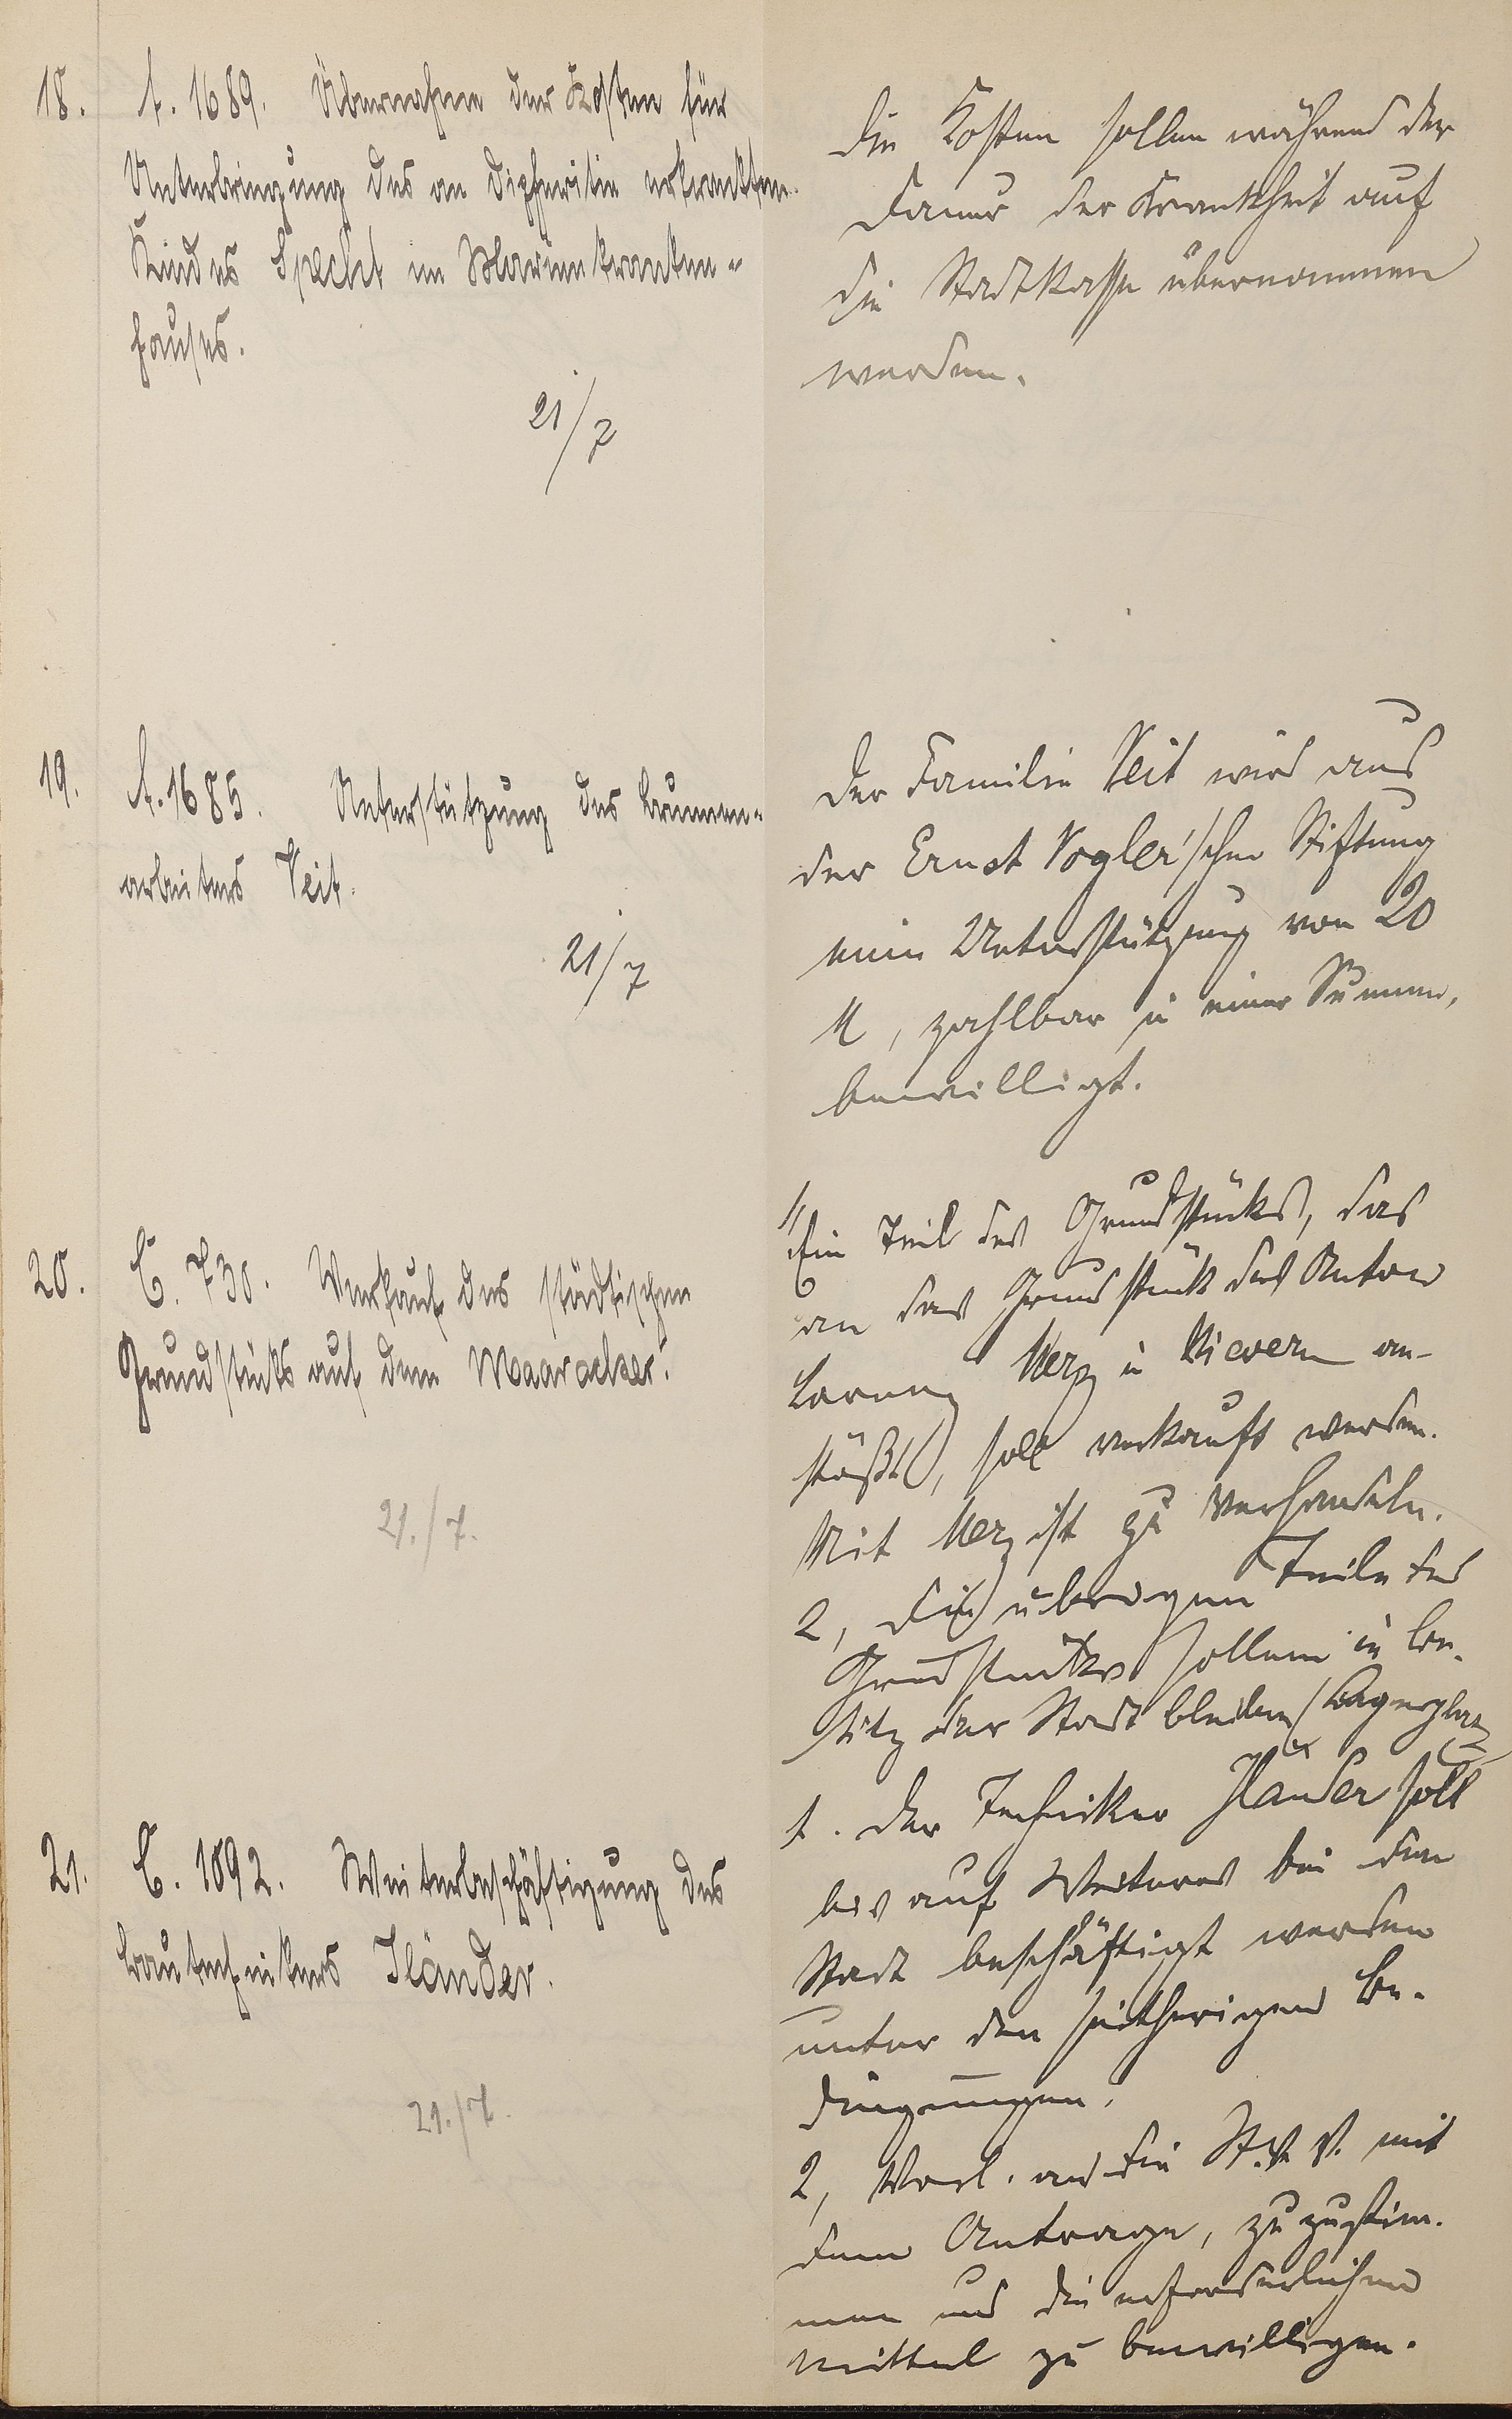 18. A. 1689. Übernahme der Kosten für
Unterbringung des an Dipheritie erkrankten
Kindes Specht im Marienkranken-
hauses.
21/7
Die Kosten sollen während der
Dauer der Krankheit auf
die Stadtkasse übernommen
werden.
19. A. 1685. Unterstützung des Brunnen-
arbeiters Veit.
21/7
Der Familie Veit wird aus
der Ernst Vogler'schen Stiftung
eine Unterstützung von 20
M, zahlbar in einer Summe,
bewilligt.
20. C. 730. Verkauf des städtischen
Grundstücks auf dem Maaracker.
21./7.
1, Ein Teil des Grundstücks, das
an das Grundstück des Anton
Lorenz Merz in Nievern an-
stößt, soll verkauft werden.
Mit Merz ist zu verhandeln.
2, Die übrigen Teile des
Grundstücks sollen in Be-
sitz der Stadt bleiben (Lagerplatz
21. C. 1092. Weiterbeschäftigung des
Bautechnikers Iländer.
21./7.
1. Der Techniker Iländer soll
bis auf Weiteres bei der
Stadt beschäftigt werden
unter den seitherigen Be-
dingungen.
2, Vorl. an die St. V. V. mit
dem Antrage, zuzustim-
men und die erforderlichen
Mittel zu bewilligen.